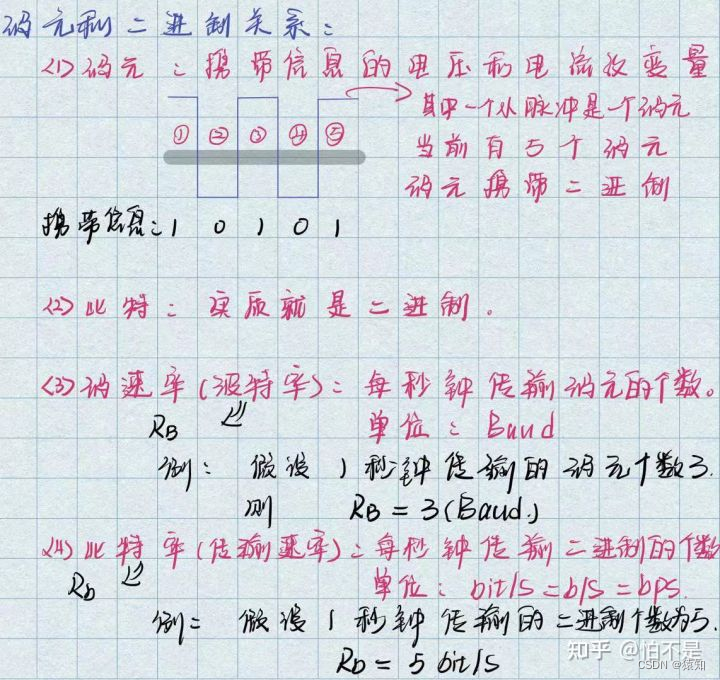 码元和二进制关系:
(1)码元:携带信息的电压和电流段变量
其中一个从脉冲是一个码元
① ② ③ ④ ⑤
当前有5个码元
码元携带二进制
携带信息:1 0 1 0 1
(2)比特:实质就是二进制.
(3)码速率(波特率):每秒钟传输码元的个数。
RB 单位:Baud
例: 假设1秒钟传输的码元个数3.
则 RB=3(Baud.)
(4)比特率(传输速率):每秒钟传输二进制的个数
Rb 单位:bit/s=b/s=bps.
例: 假设1秒钟传输的二进制个数为5.
Rb=5bit/s
知乎 @怕不是
CSDN @猿知